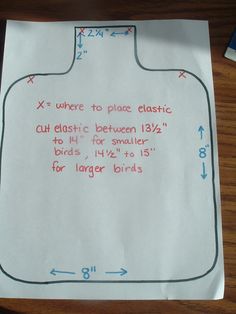 x 2¼" x
2"
x x
x = where to place elastic
cut elastic between 13½"
to 14" for smaller
birds, 14½" to 15"
for larger birds
8"
8"